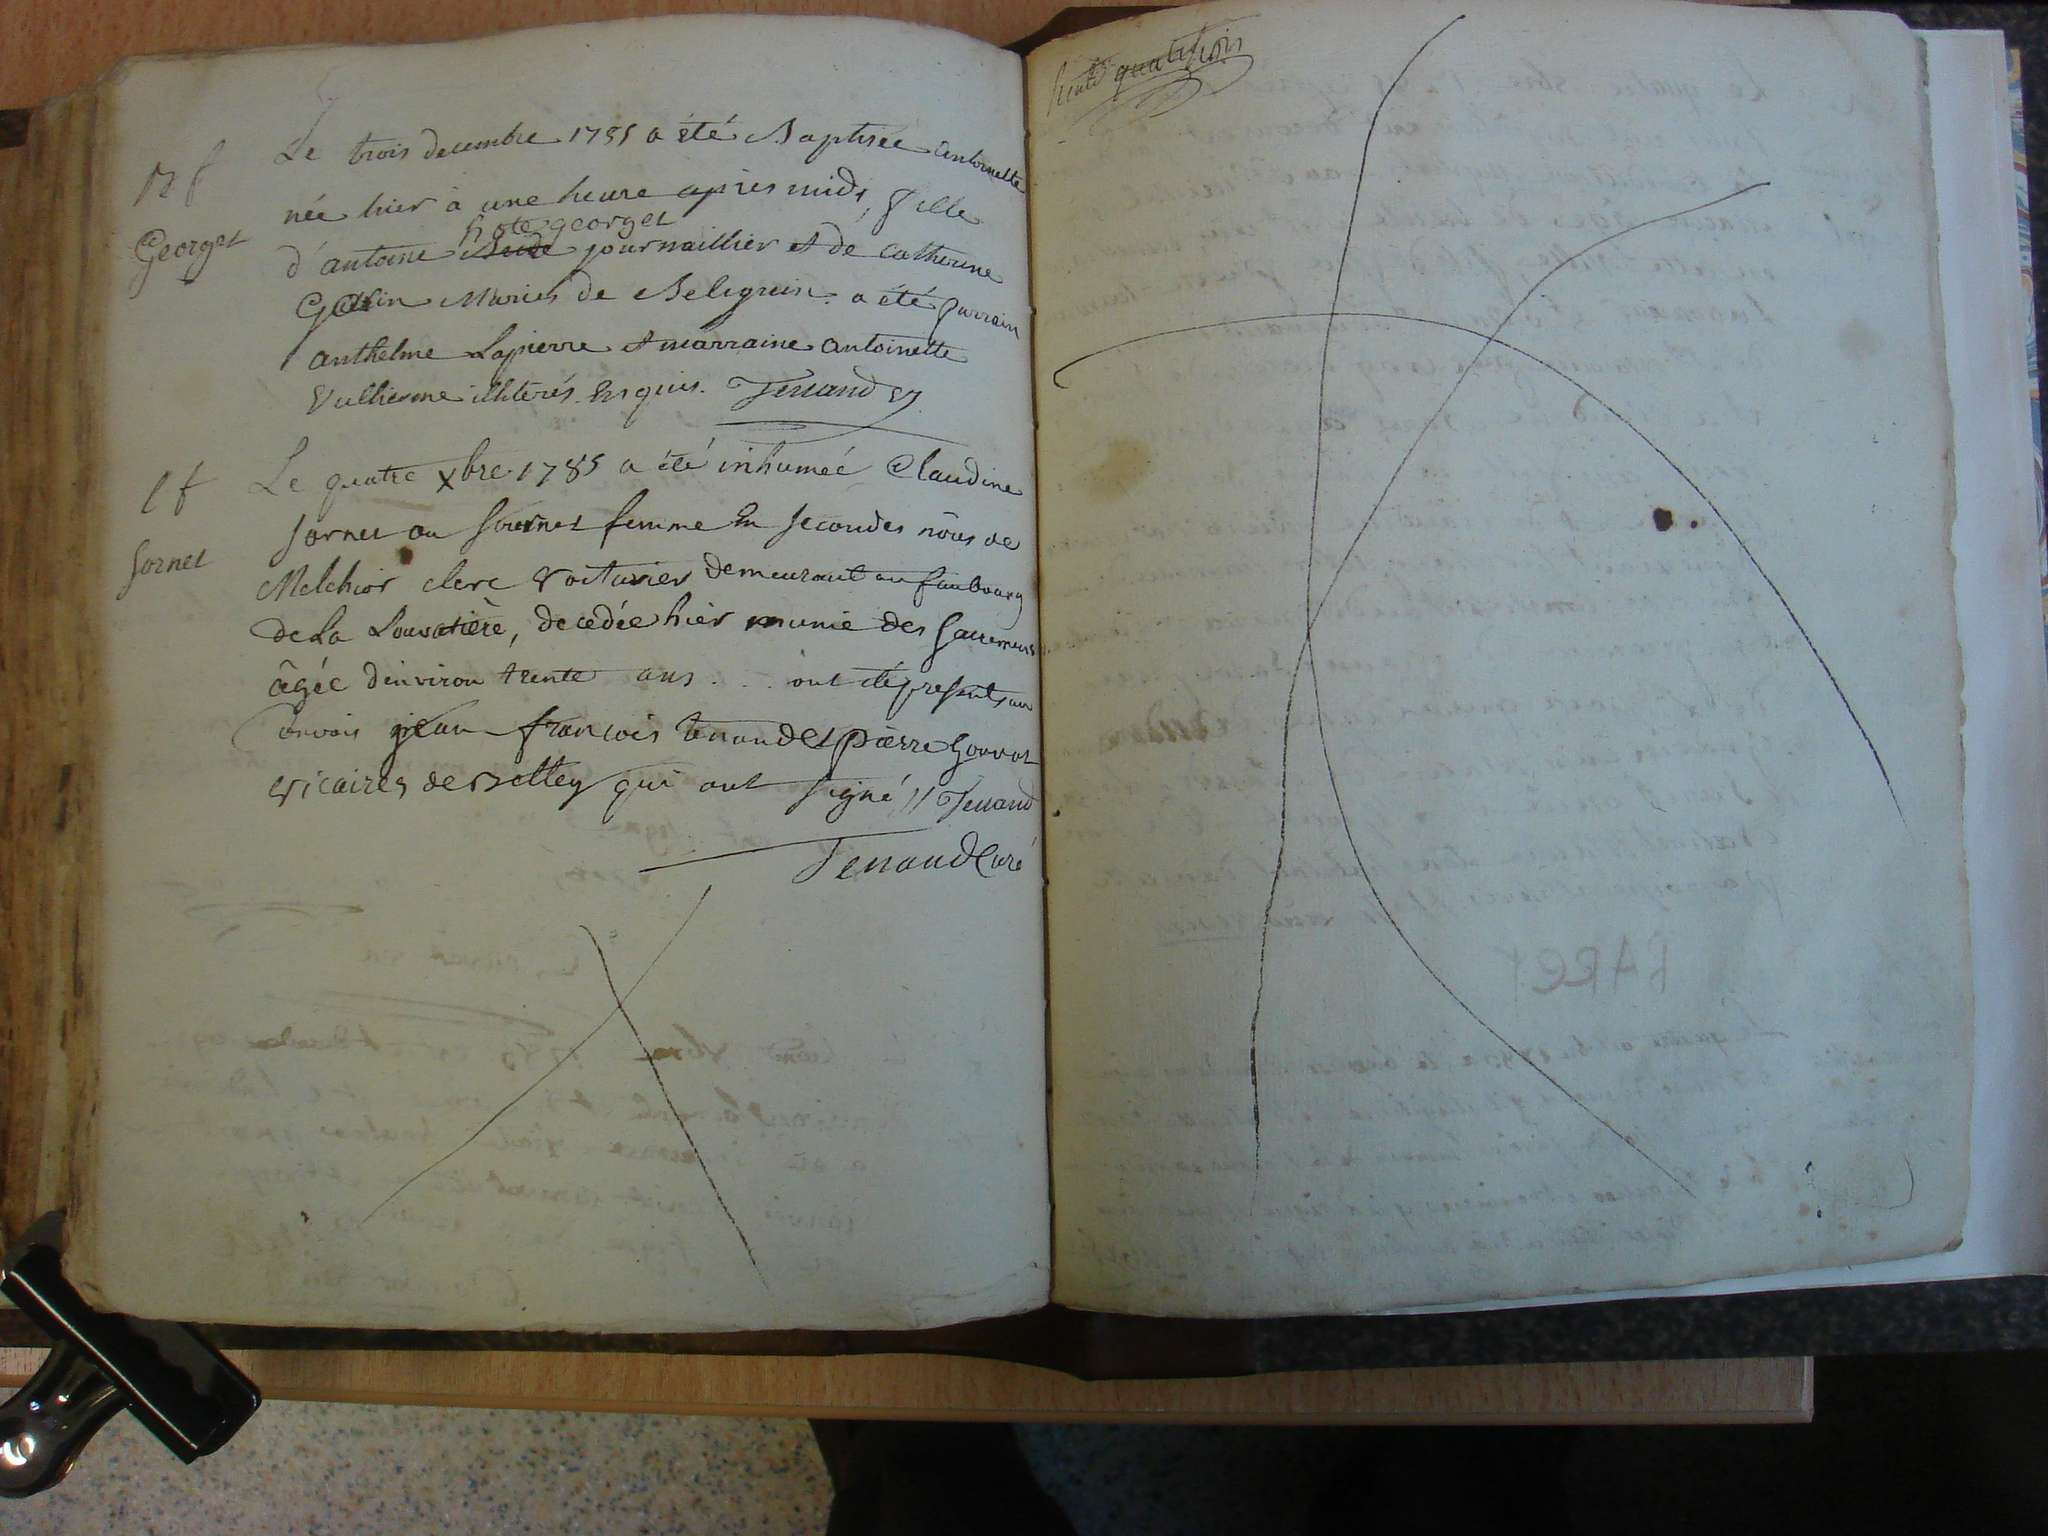 B f
Georget
Le trois decembre 1785 a été Baptisée antoinette
née hier à une heure apres midi, fille
hote georget
d'antoine journaillier et de catherine
Mariés de Belignin. a été parrain
anthelme Lapierre et marraine antoinette
Vullierme illiterés Enquis. Tenand
l f
Sornet
Le quatre xbre 1785 a été inhumée Claudine
Sornet ou Sournet femme En secondes nôces de
Melchior clerc Voiturier demeurant au faubourg
de La Louvatière, decedée hier munie des Sacremens
âgée d'environ trente ans . . . ont été presents au
Convois jean françois Tenand et pierre Gonnot
vicaires de Belley qui ont signé // Tenand
Tenand Curé